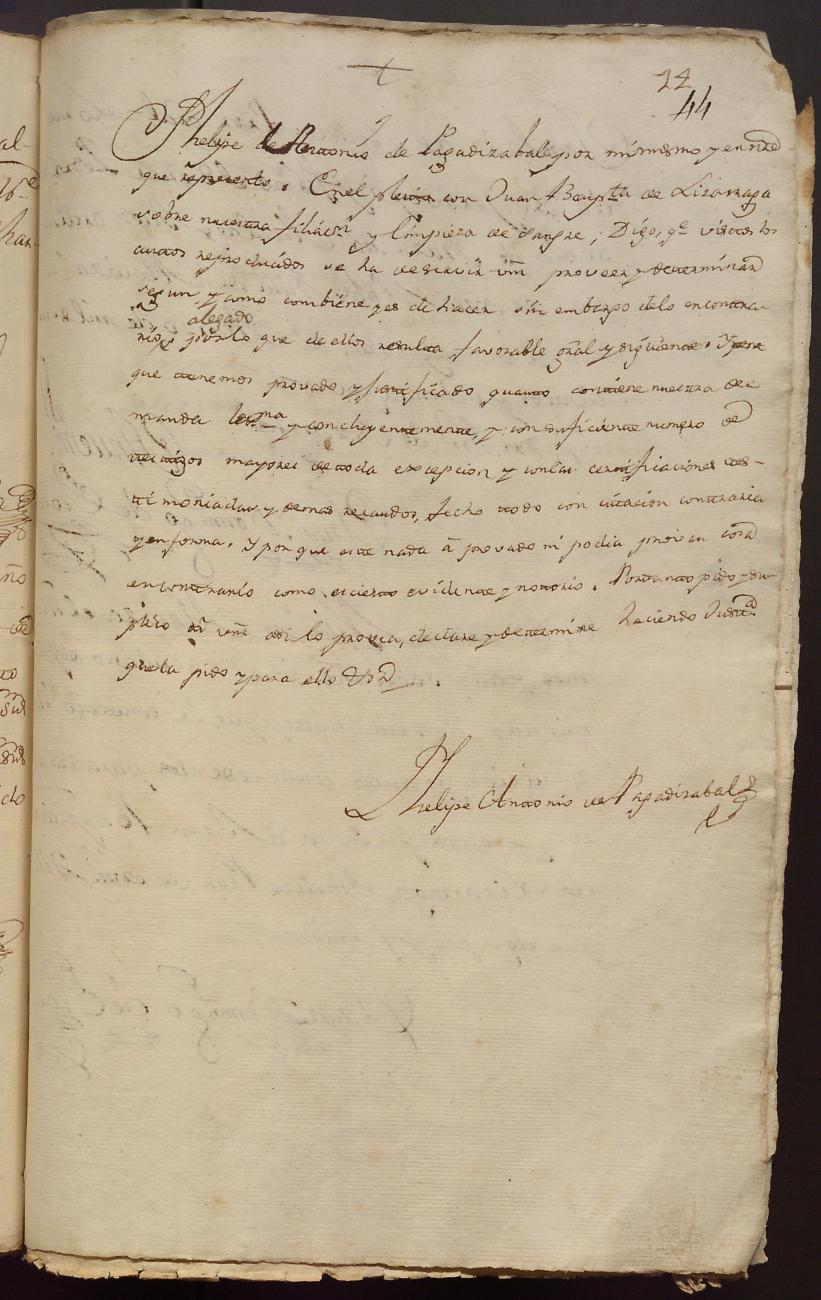 22
44
Phelipe de Antonio de Pagadizabal por mi mismo y en nre
que represento. En el pleito con Juan Baupta de Lizarraga
sobre nuestra filiacn y limpieza de sangre; Digo, qe vistos los
autos reproducidos se ha de servir vm proveer y determinar
segun y como combiene y es de hacer sin embargo delo encontra-
alegado
rio por lo que de ellos resulta favorable gral y siguiente. Y por
que tenemos provado y justificado quanto contiene nuestra de
manda legma y concluyentemente, y con suficiente numero de
testigos mayores de toda excepcion y con las certificaciones tes-
timoniadas y demas recaudos, fecho todo con citacion contraria
y en forma. Y por que este nada a provado ni podia provar cosa
en contrario como es cierto evidente y notorio. Portanto pido y su-
plico a vm asi lo provea, declare y determine haciendo Justa
que la pido y para ello &a
Phelipe Antonio de Pagadizabal